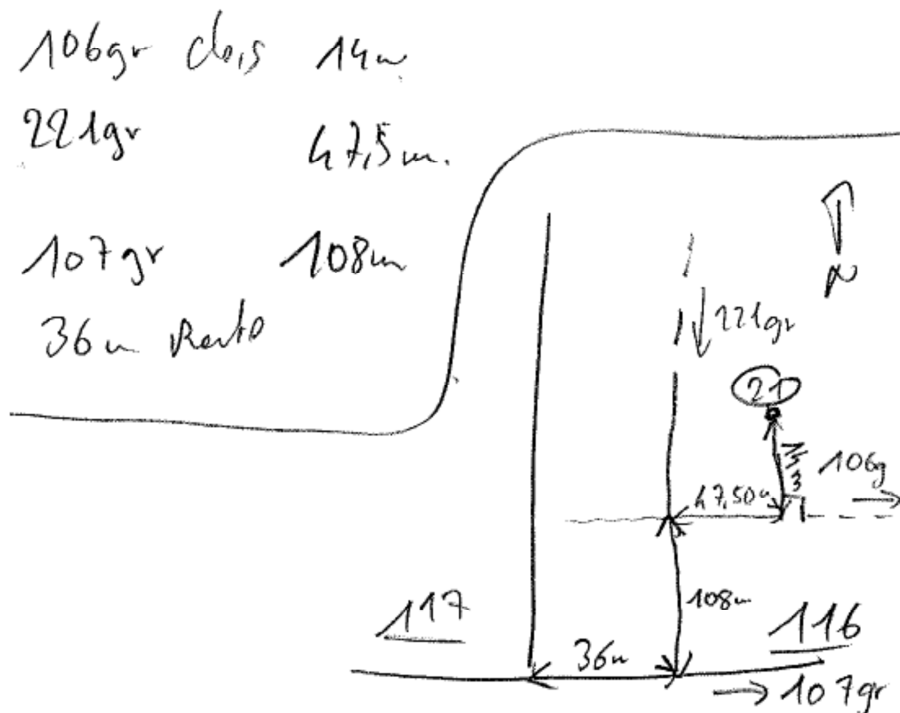 106gr 14m
221gr 47,5m.
107gr 108m
36m
N
221gr
21
106g
47,50m
108m
117
116
36m
→ 107gr